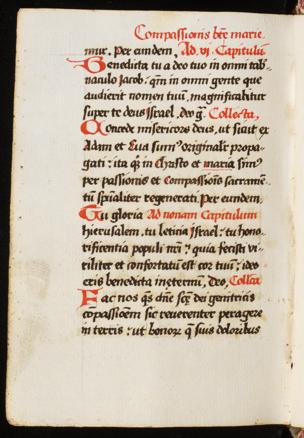 Compassionis bte marie
mur. Per eundem. Ad vi. Capitulū
Benedicta tu a deo tuo in omni tab-
naculo Jacob: qm̄ in omni gente que
audierit nomen tuū, magnificabitur
super te deus israel, deo g. Collecta.
Concede misericors deus, ut sicut ex
Adam et Eua sumꝰ originalr̄ propa-
gati: ita qs̄ in Christo et maria simꝰ
per passionis et compassiōis sacramē-
tū spūaliter regenerati. Per eundem.
Tu gloria Ad nonam Capitulum
hierusalem, tu leticia Israel: tu hono-
rificentia populi nr̄i: quia fecisti vi-
riliter et confortatū est cor tuū: ideo
eris benedicta in eternū, Deo, Collcā
Fac nos qs̄ dn̄e scē dei genitricis
cōpassiōem sic reuerenter peragere
in terris: ut honore q̄ suis doloribus